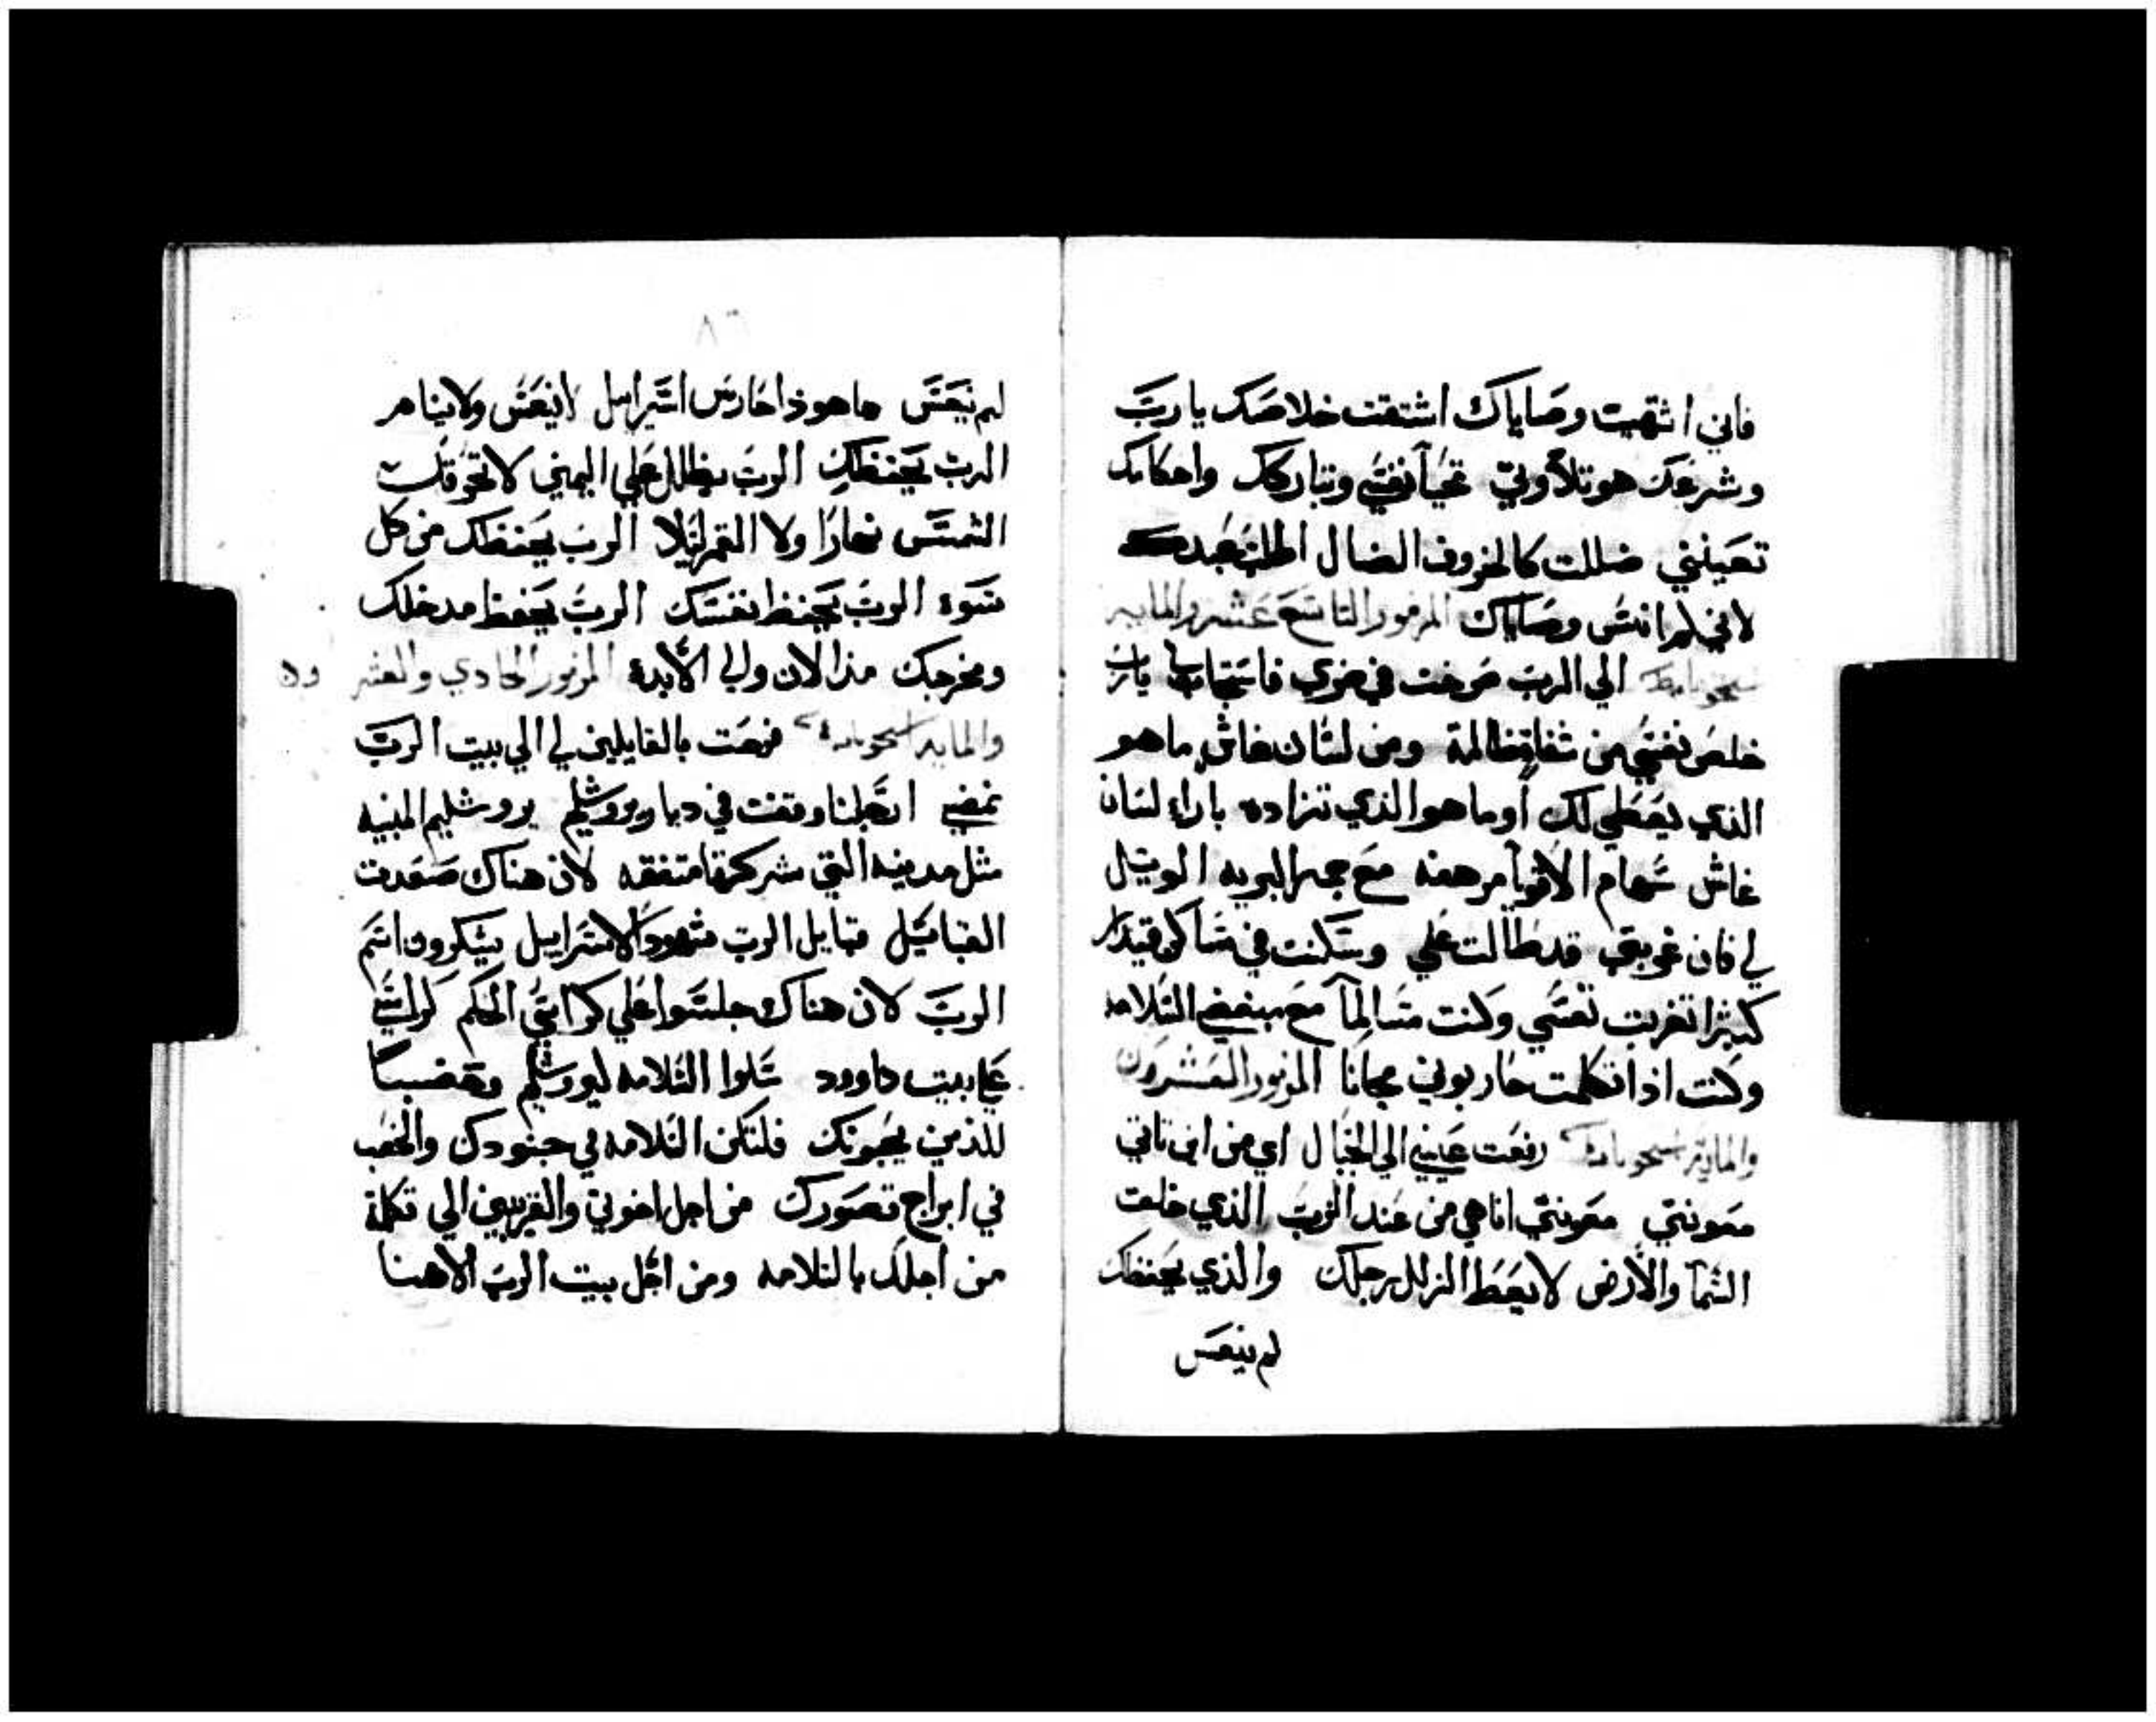 فاني اشتهيت وصاياك اشتقت خلاصك يا رب
وشرعك هو تلاوتي تحيا نفسي وتباركك واحكامك
تعينني ضللت كالخروف الضال اطلب عبدك
لاني لم انس وصاياك المزمور التاسع عشر والمايه
الي الرب صرخت في حزني فاستجاب لي يا رب
خلص نفسي من شفاة ظالمة ومن لسان غاش ما هو
الذي يعطي لك او ما هو الذي تزاده بازاء لسان
غاش سهام الاقويا مرهفه مع جمر البريه الويل
لي فان غربتي قد طالت علي وسكنت في مساكن قيدار
كثيرا تغربت نفسي وكنت مسالما مع مبغضي السلامه
وكنت اذا تكلمت حاربوني مجانا المزمور العشرون
والمايه رفعت عيني الي الجبال اي من اين تاتي
معونتي معونتي انا هي من عند الرب الذي خلق
السما والارض لا يعط الزلل رجلك والذي يحفظك
لم ينعس
٨٦
لم ينعس ها هوذا حارس اسراييل لا ينعس ولا ينام
الرب يحفظك الرب يظلل علي اليمني لا تحرقك
الشمس نهارا ولا القمر ليلا الرب يحفظك من كل
سوء الرب يحفظ نفسك الرب يحفظ مدخلك
ومخرجك مذ الان والي الابد المزمور الحادي والعشرون
والمايه فرحت بالقايلين لي الي بيت الرب
نمضي ارجلنا وقفت في ديار يروشليم يروشليم المبنيه
مثل مدينه التي شركتها متفقه لان هناك صعدت
القبايل قبايل الرب شهودا لاسراييل يشكرون اسم
الرب لان هناك جلسوا علي كراسي الحكم كراسي
علي بيت داوود سلوا السلامه ليروشليم وخصبا
للذين يحبونك فلتكن السلامه في جنودك والخصب
في ابراج قصورك من اجل اخوتي والقريبين الي تكلمة
من اجلك بالسلامه ومن اجل بيت الرب الاهنا